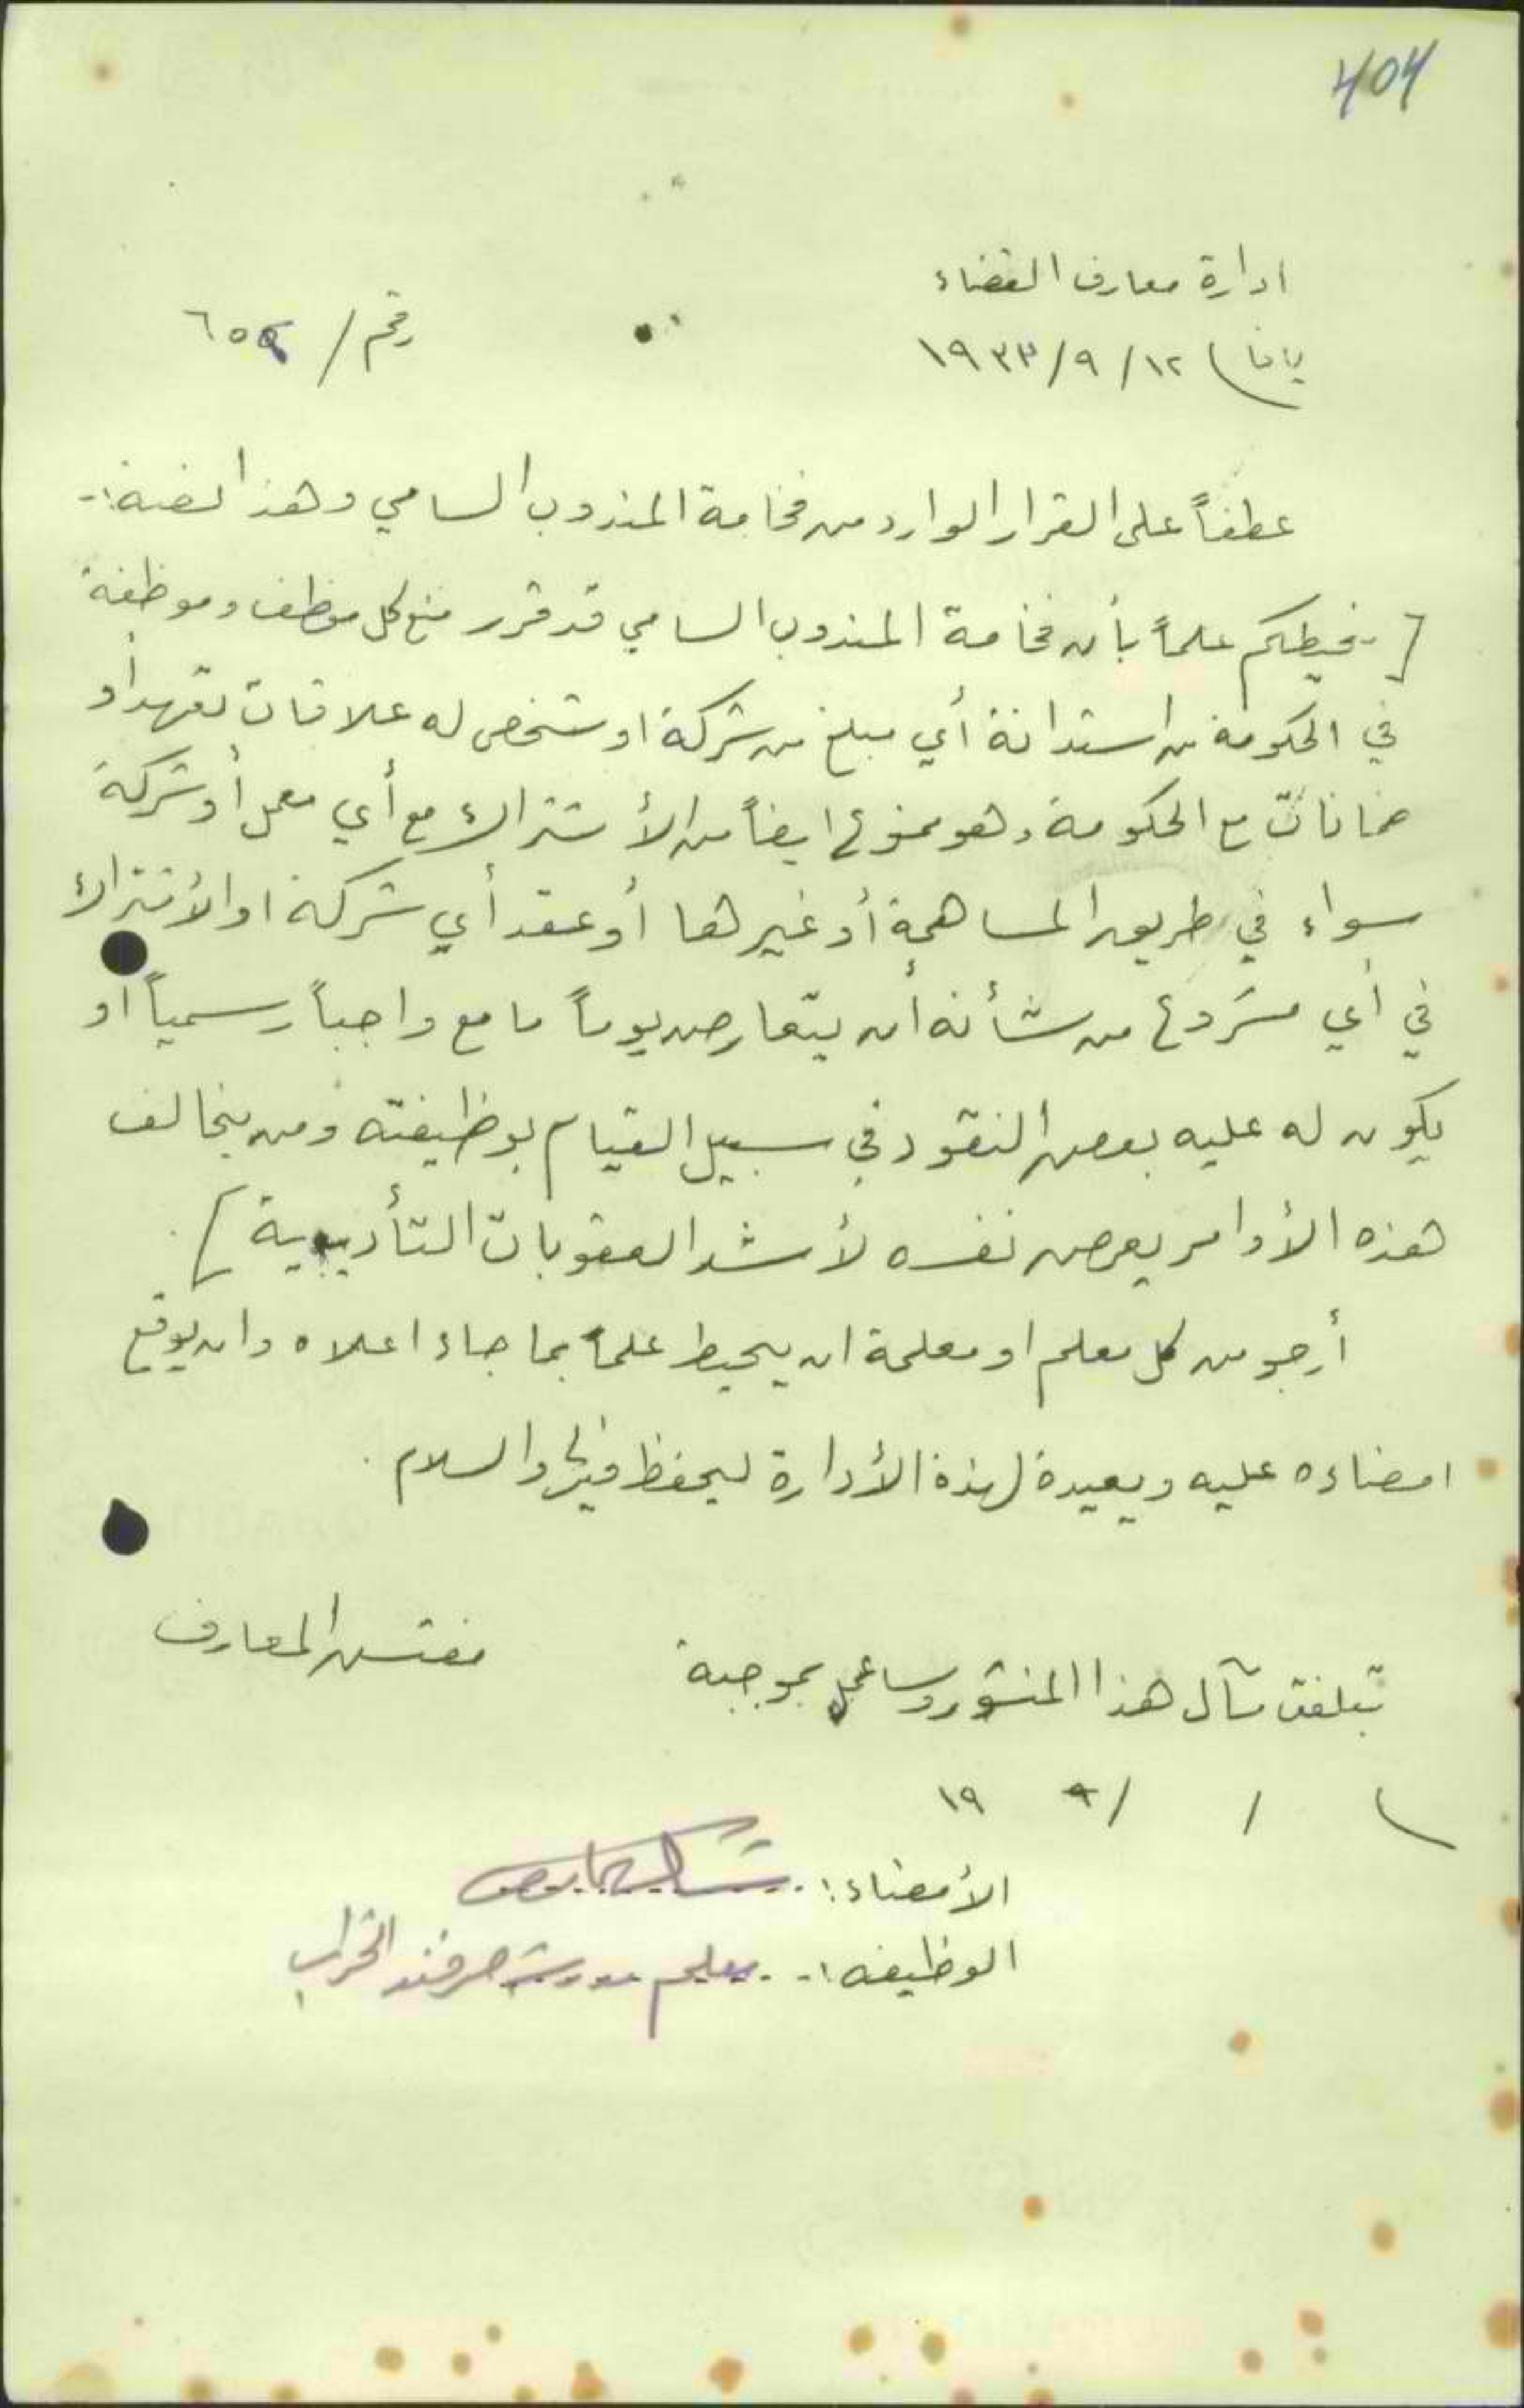 404
ادارة معارف القضاء
يافا ) ١٢ / ٩ / ١٩٣٣
رقم / ٦٥٥
عطفاً على القرار الوارد من فخامة المندوب السامي وهذا نصه:-
[ نحيطكم علماً بأن فخامة المندوب السامي قد قرر منع كل موظف وموظفة
في الحكومة من استدانة أي مبلغ من شركة او شخص له علاقات تعهد أو
ضمانات مع الحكومة وهو ممنوع ايضاً من الأشتراك مع أي معمل أو شركة
سواء في طريق المساهمة أو غيرها أو عقد أي شركة او الأشتراك
في أي مشروع من شأنه أن يتعارض يوماً ما مع واجباً رسمياً او
يكون له عليه بعض النقود في سبيل القيام بوظيفته ومن يخالف
هذه الأوامر يعرض نفسه لأشد العقوبات التأديبية ]
أرجو من كل معلم او معلمة ان يحيط علماً بما جاء اعلاه وان يوقع
امضاءه عليه ويعيدة لهذة الأدارة ليحفظ فيها والسلام .
مفتش المعارف
تبلغت مآل هذا المنشور وساعمل بموجبة
) / / ٩ ١٩
الأمضاء:
الوظيفه :- معلم مدرسة صرفند الخراب